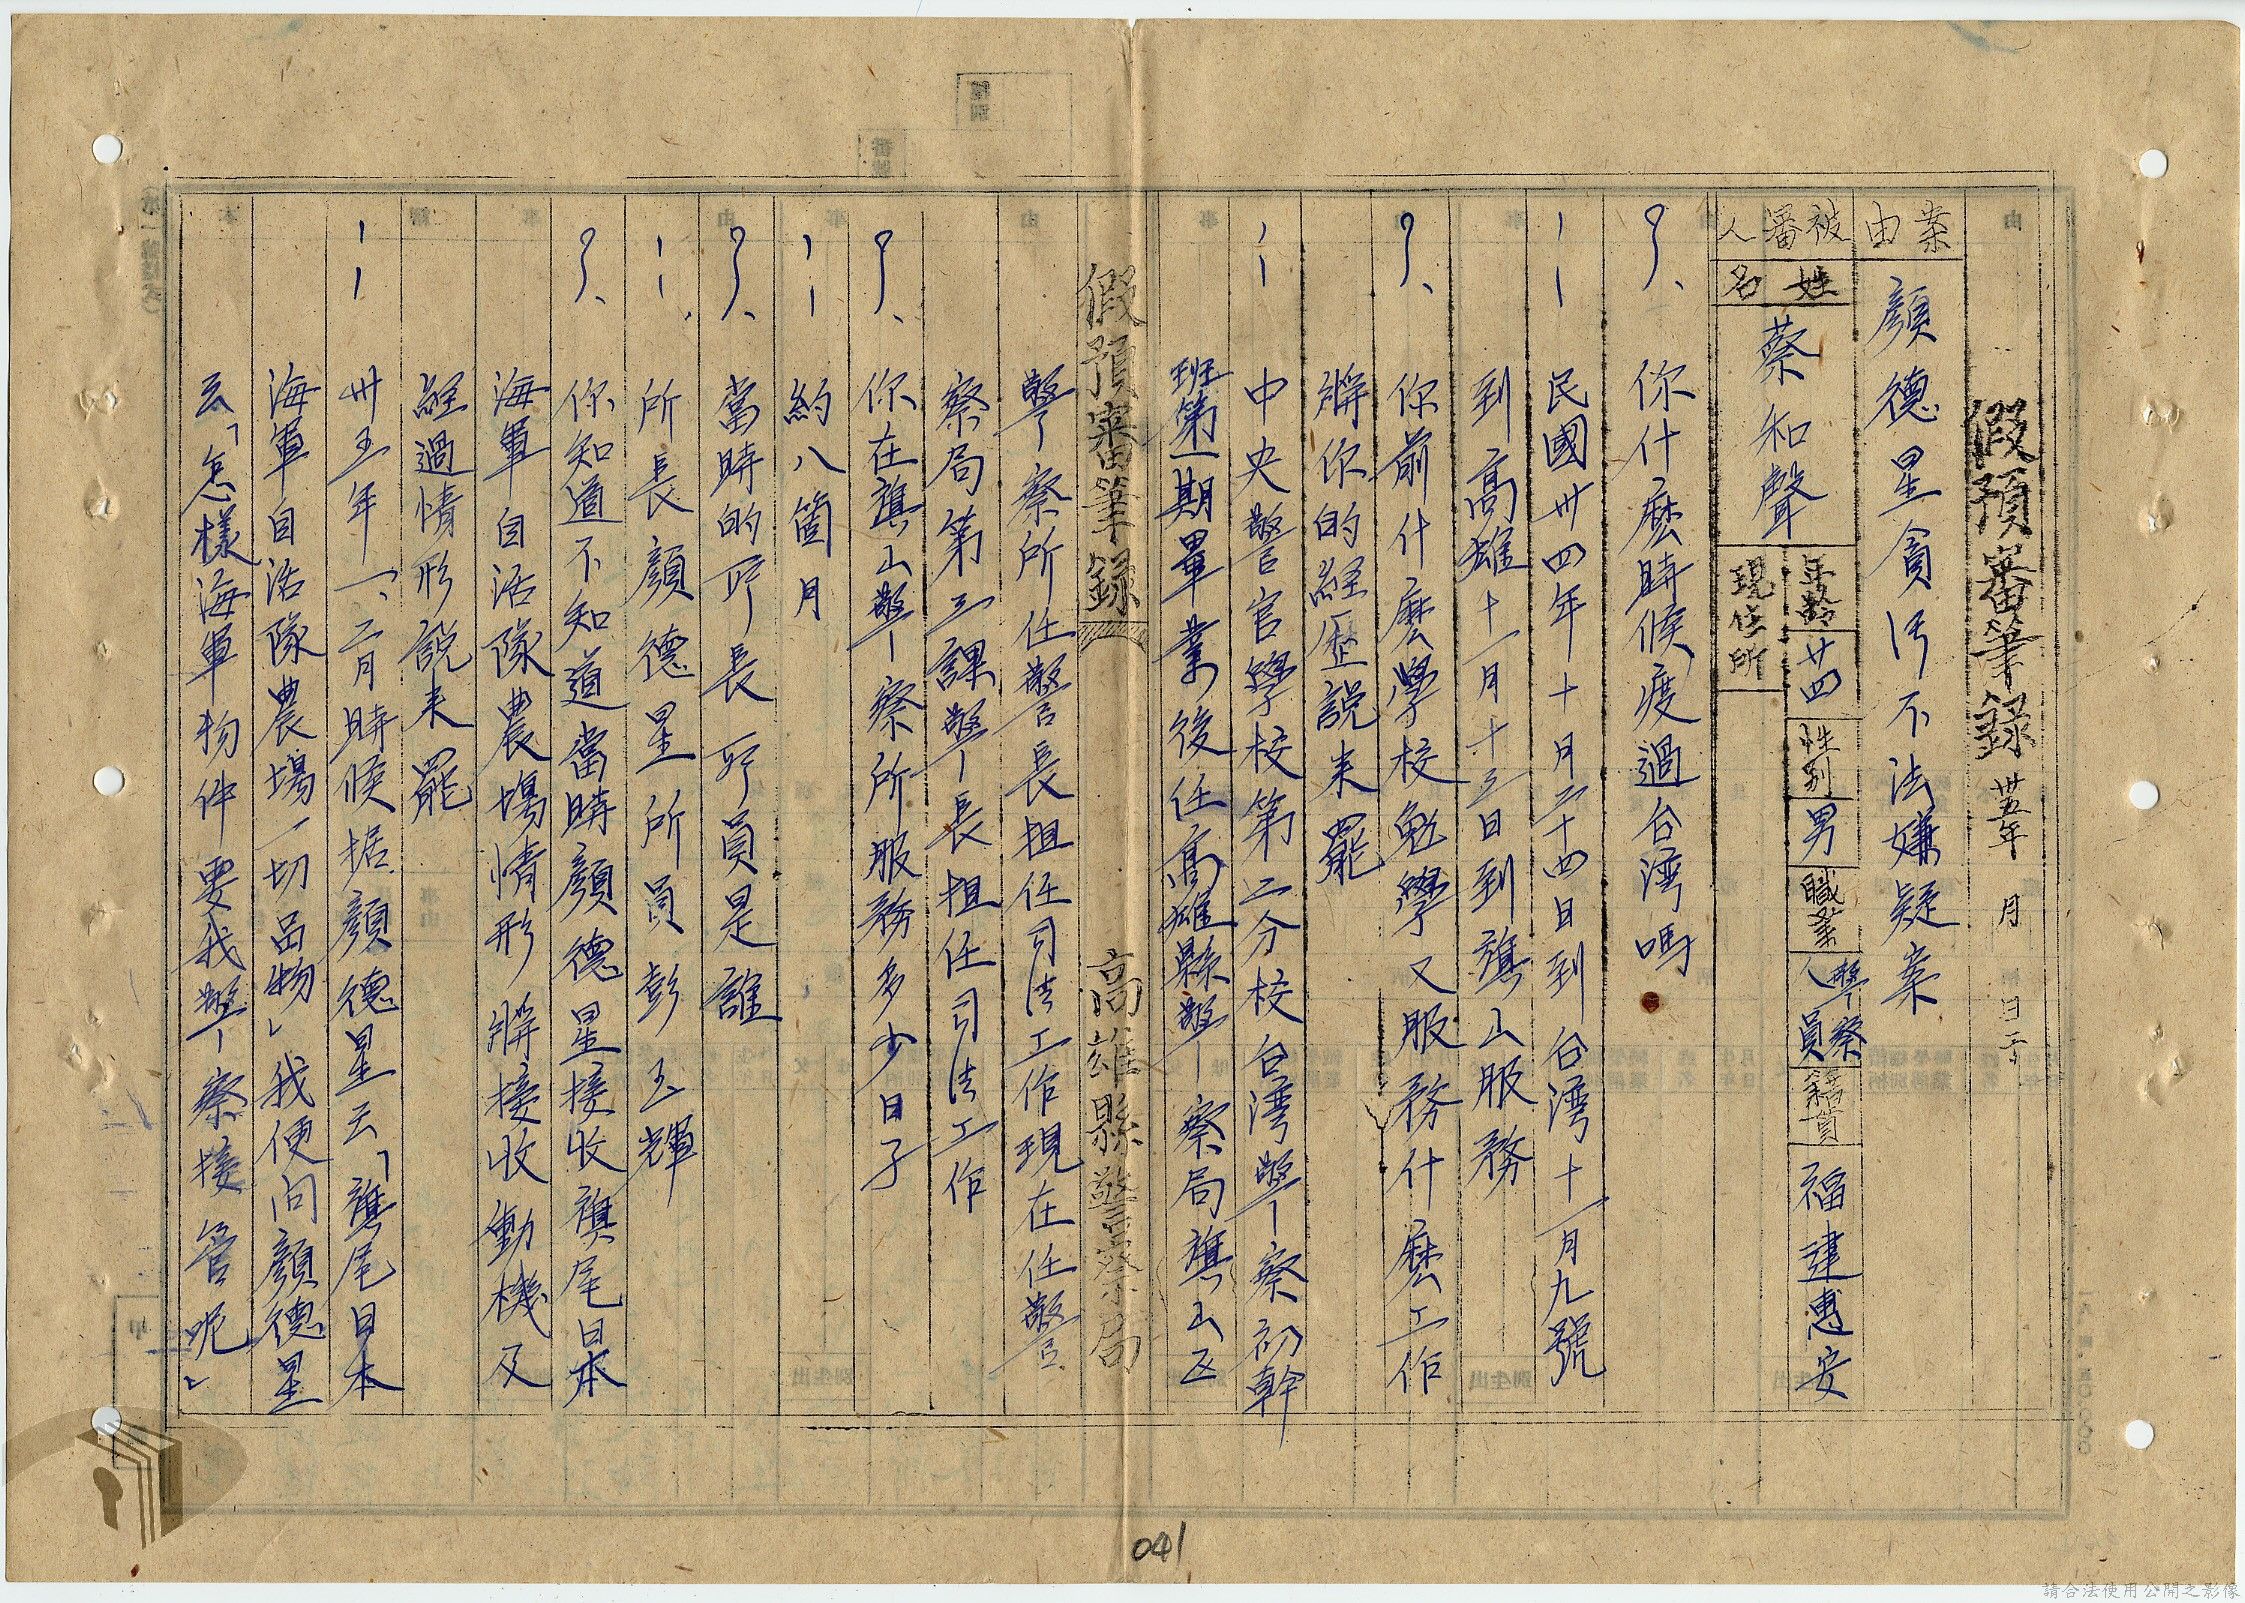 假預審筆錄 卅五年 月 日
案由 顏德星貪污不法嫌疑案
被審人 姓名 蔡和聲 年齡 廿四 性別 男 職業 警察人員 籍貫 福建惠安
現住所
?、你什麽時候渡過台湾嗎
民國卅四年十月二十四日到台湾十一月九號
到高雄十一月十三日到旗山服務
?、你前什麽學校勉學又服務什麽工作
將你的經歷説来罷
中央警官學校第二分校台湾警察初幹
班第一期畢業後任高雄縣警察局旗山区
假預審筆錄 高雄縣警察局
警察所任警長担任司法工作現在任警
察局第三課警長担任司法工作
?、你在旗山警察所服務多少日子
約八箇月
?、當時的所長所員是誰
所長顏德星所員彭玉輝
?、你知道不知道當時顏德星接收旗尾日本
海軍自活隊農場情形將接收動機及
經過情形説来罷
卅五年一、二月時候据顏德星云「旗尾日本
海軍自活隊農場一切品物」我便问顏德星
云「怎樣海軍物件要我警察接管呢」
041
請合法使用公開之影像